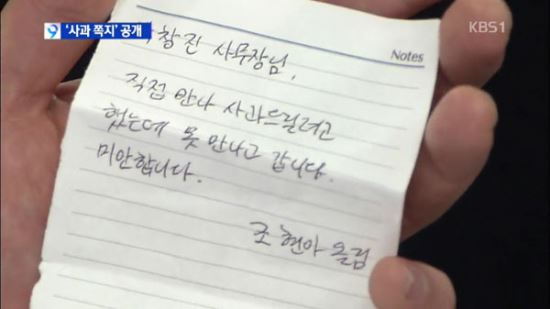 9 '사과 쪽지' 공개
KBS1
Notes
창진 사무장님,
직접 만나 사과드릴려고
했는데 못 만나고 갑니다.
미안합니다.
조현아 올림